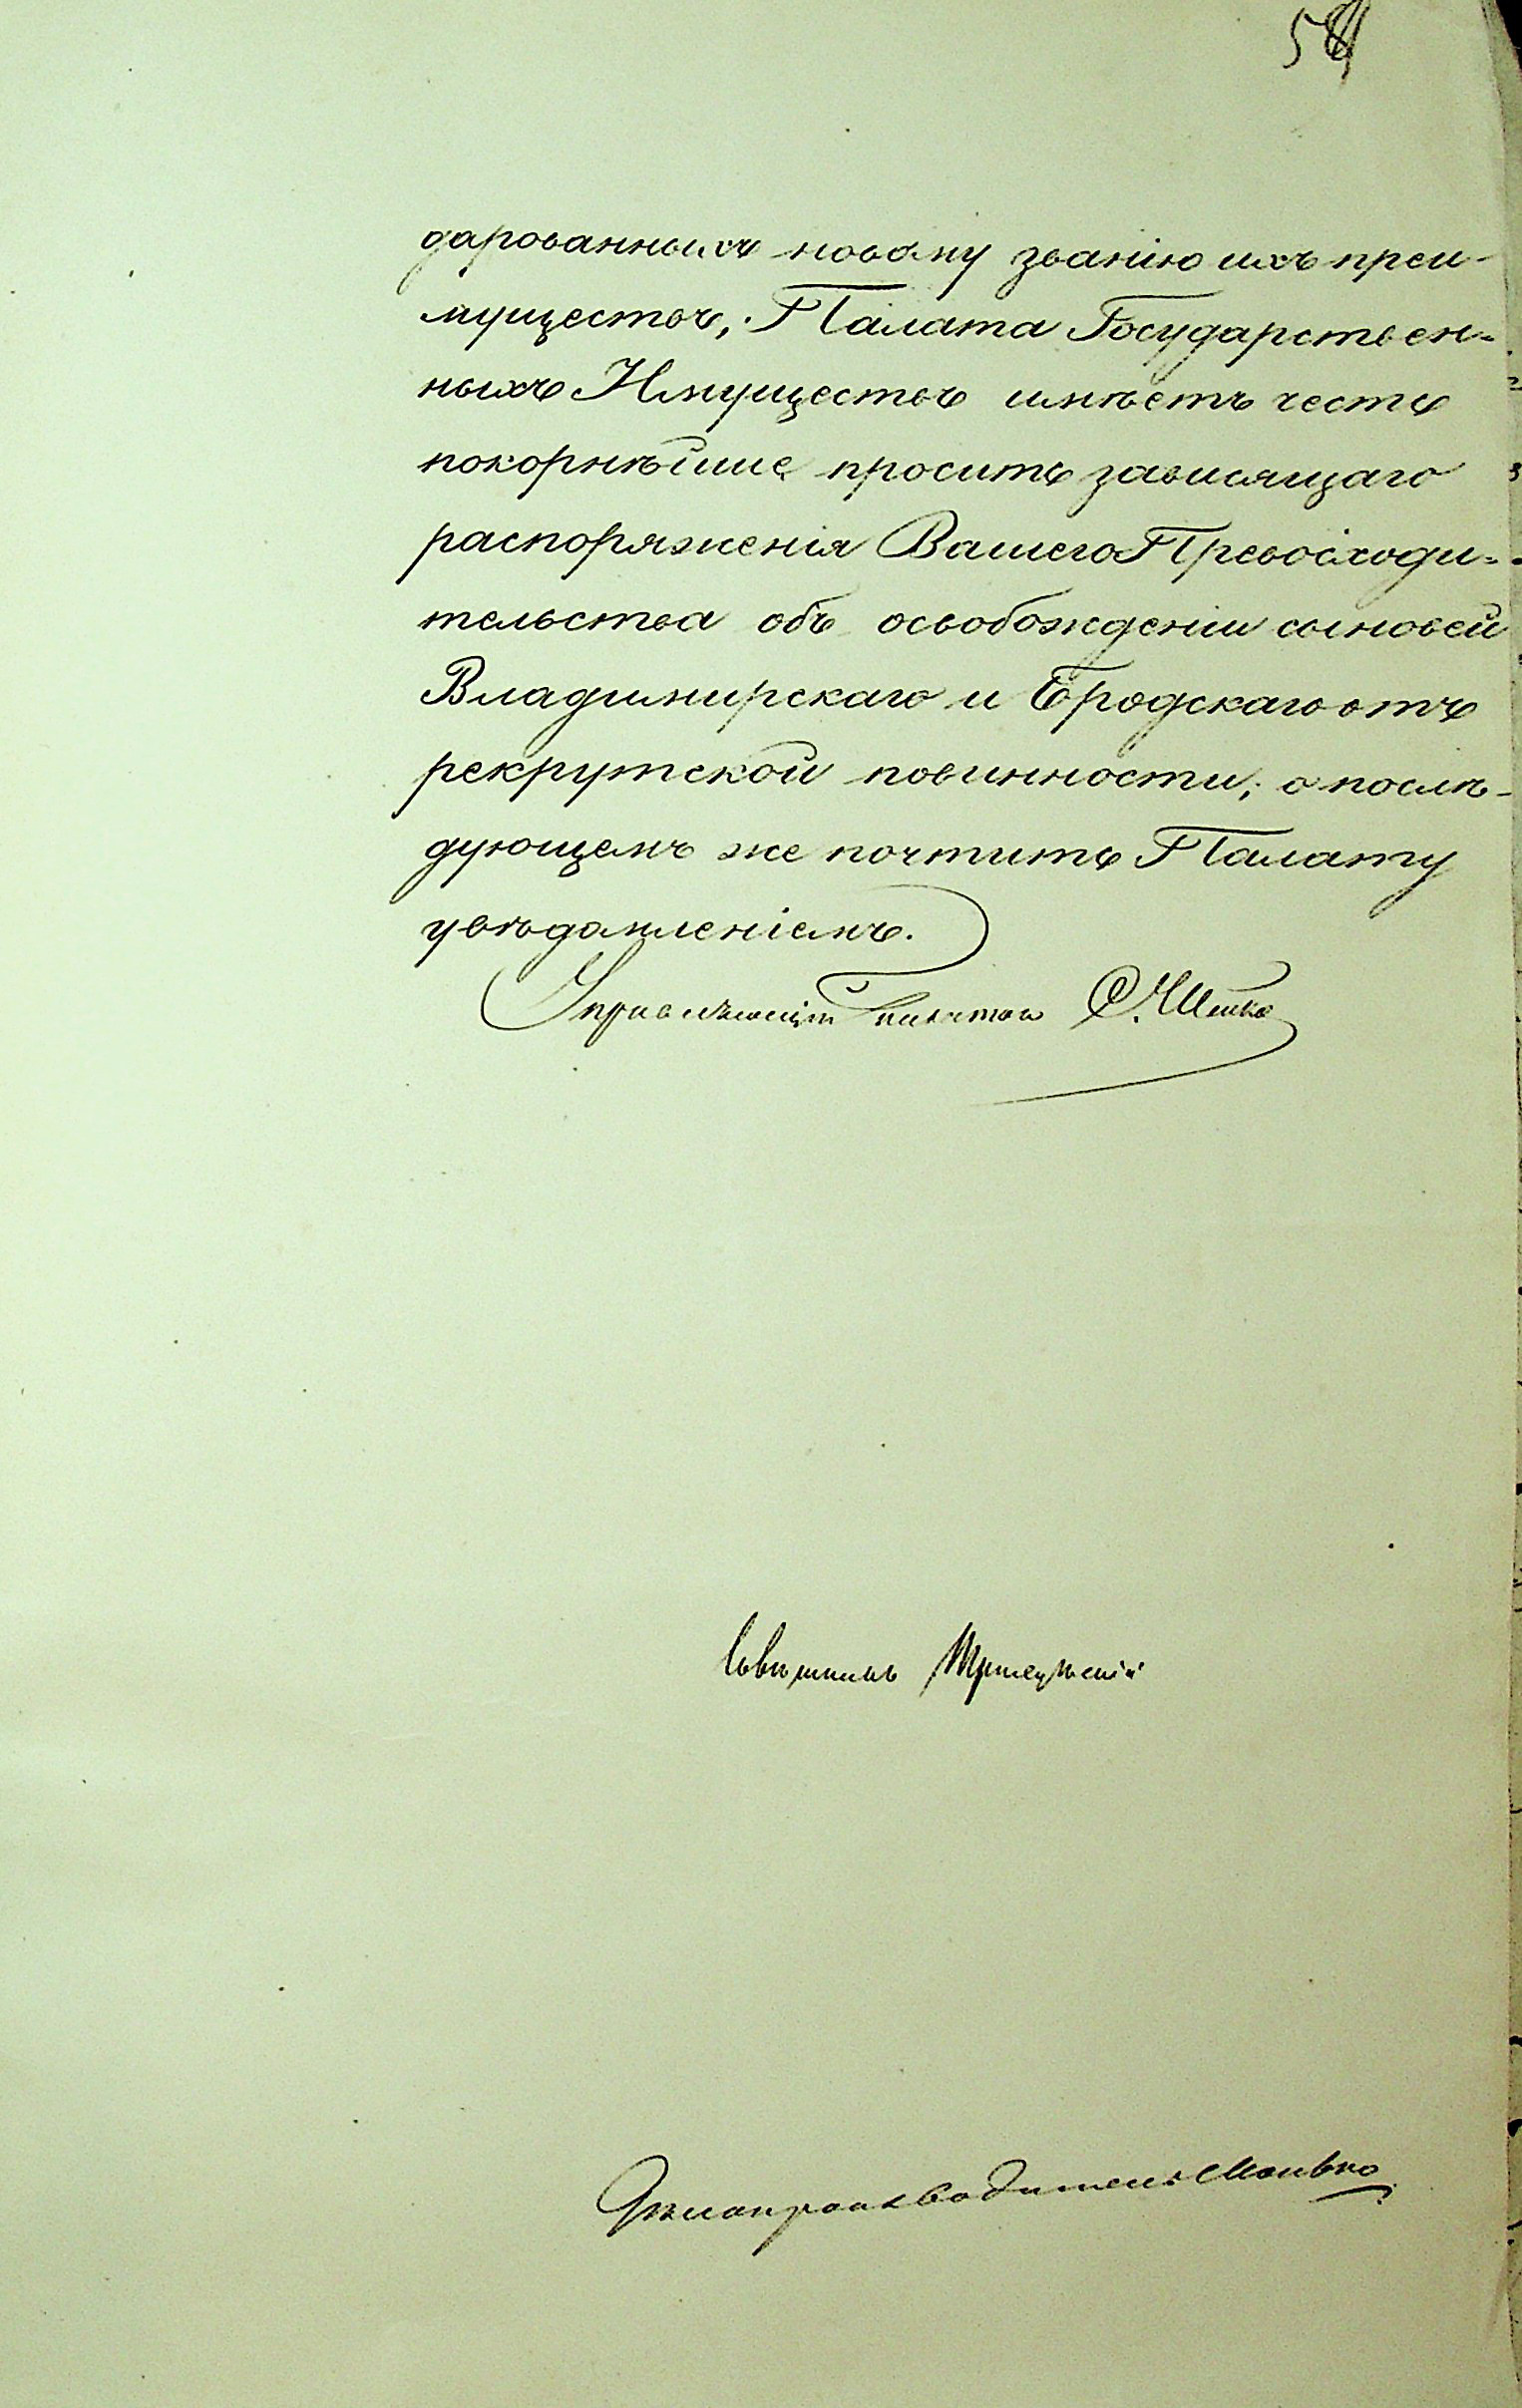 дарованныхъ новому званію ихъ преи-
муществъ, Палата Государствен-
ныхъ Имуществъ имѣетъ честь
покорнѣйше просить зависящаго
распоряженія Вашего Превосходи-
тельства объ освобожденіи сыновей
Владимирскаго и Бродскаго отъ
рекрутской повинности, о послѣ-
дующемъ же почтить Палату
увѣдомленіемъ.
Управляющій Палатою
Совѣтникъ
Дѣлопроизводитель